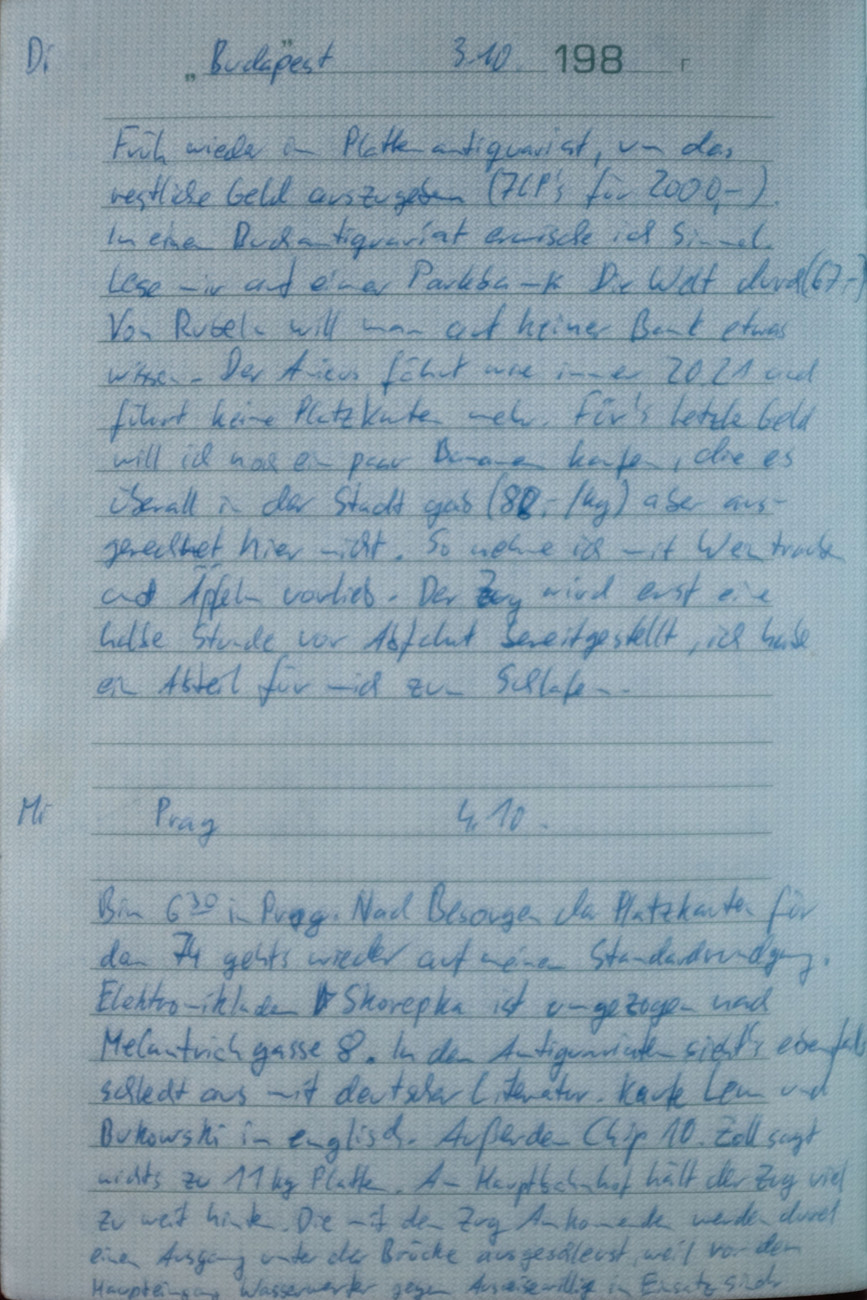 Di „Budapest" 3.10. 198 г
Früh wieder im Plattenantiquariat, um das
restliche Geld auszugeben (7LP's für 2000,-).
In einem Buchantiquariat erwische ich Simmel.
Lese mir auf einer Parkbank Die Welt durch (67,-)
Von Rubeln will man auf keiner Bank etwas
wissen. Der Amicus fährt wie immer 20.21 und
führt keine Platzkarten mehr. Für's letzte Geld
will ich noch ein paar Bananen kaufen, die es
überall in der Stadt gab (80,-/kg) aber aus-
gerechnet hier nicht. So nehme ich mit Weintrauben
und Äpfeln vorlieb. Der Zug wird erst eine
halbe Stunde vor Abfahrt bereitgestellt, ich habe
ein Abteil für mich zum Schlafen.
Mi Prag 4.10.
Bin 6³⁰ in Prag. Nach Besorgen der Platzkarten für
den 74 gehts wieder auf meinen Standardrundgang.
Elektronikladen Skorepka ist umgezogen nach
Melantrichgasse 8. In den Antiquariaten sieht's ebenfalls
schlecht aus mit deutscher Literatur. Kaufe Lem und
Bukowski in englisch. Außerdem Chip 10. Zoll sagt
nichts zu 11kg Platten. Am Hauptbahnhof hält der Zug viel
zu weit hinten. Die mit dem Zug Ankommenden werden durch
einen Ausgang unter der Brücke ausgeschleust, weil vor dem
Haupteingang Wasserwerfer gegen Ausreisewillige in Einsatz sind.